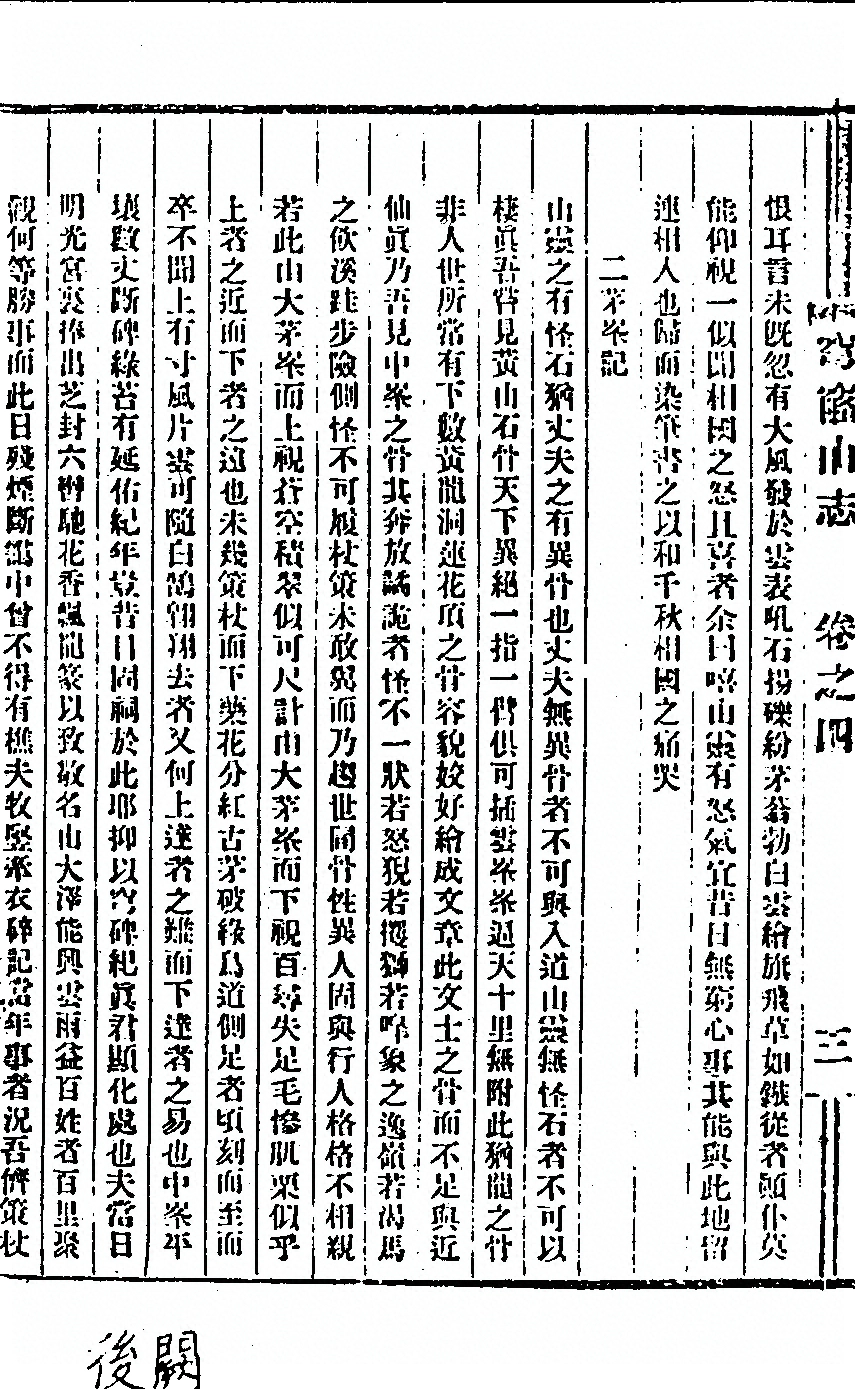 山志　卷之四　三
恨耳言未既忽有大風發於雲表吼石揚礫紛茅蓊勃白雲繪旗飛草如鏃從者顛仆莫
能仰視一似聞相國之怒且喜者余曰嘻山靈有怒氣宜昔日無窮心事其能與此地留
連相人也歸而染筆書之以和千秋相國之痛哭
二茅峯記
山靈之有怪石猶丈夫之有異骨也丈夫無異骨者不可與入道山靈無怪石者不可以
棲眞吾嘗見黃山石骨天下異絕一指一臂俱可插雲峯峯逼天十里無附此猶龍之骨
非人世所常有下數黃龍洞蓮花頂之骨容貌姣好繪成文章此文士之骨而不足與近
仙眞乃吾見中峯之骨其奔放譎詭者怪不一狀若怒猊若攫獅若啤象之逸嶺若渴馬
之飲溪跬步險側怪不可履杖策未敢曷而乃趨世間骨性異人固與行人格格不相親
若此由大茅峯而上視蒼空積翠似可尺計由大茅峯而下視百尋失足毛慘肌栗似乎
上者之近而下者之遠也未幾策杖而下藥花分紅古茅破綠鳥道側足者頃刻而至而
卒不聞上有寸風片雲可隨白鵠翱翔去者又何上達者之難而下達者之易也中峯平
壤數丈斷碑綠苔有延佑紀年豈昔日固祠於此耶抑以穹碑紀眞君顯化處也夫當日
明光宮裏捧出芝封六轡馳花香飄龍篆以致敬名山大澤能興雲雨益百姓者百里聚
觀何等勝事而此日殘煙斷靄中曾不得有樵夫牧豎牽衣碎記當年事者況吾儕策杖
後闕